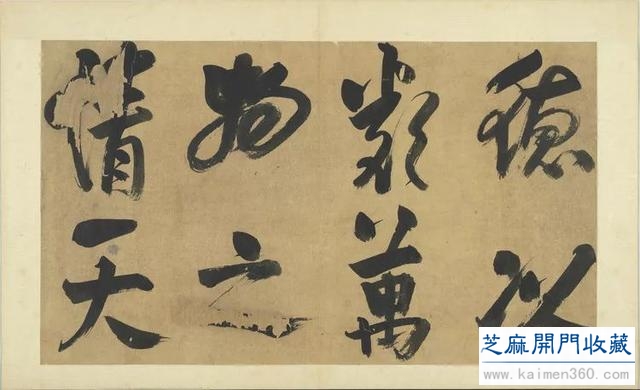 德以
類萬
物之
情天
芝麻開門收藏
www.kaimen360.com